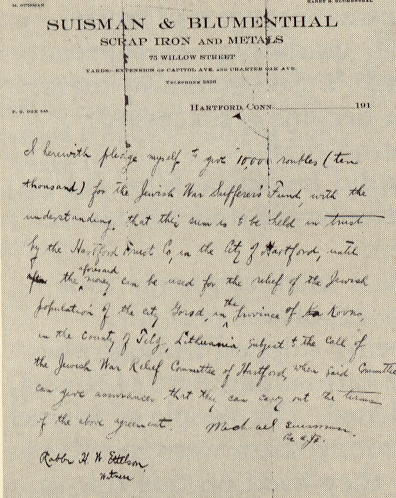 M. SUISMAN
HARRY B. BLUMENTHAL
SUISMAN & BLUMENTHAL
SCRAP IRON AND METALS
75 WILLOW STREET
YARDS: EXTENSION OF CAPITOL AVE. AND CHARTER OAK AVE.
TELEPHONE
P. O. BOX
HARTFORD, CONN. 191
I herewith pledge myself to give 10,000 roubles (ten
thousand) for the Jewish War Sufferers' Fund, with the
understanding, that this sum is to be held in trust
by the Hartford Trust Co, in the City of Hartford, until
the aforesaid money can be used for the relief of the Jewish
population of the city Gorsd, in the Province of Kovno,
in the County of Telz, Lithuania, subject to the Call of
the Jewish War Relief Committee of Hartford, when said Committee
can give assurances that they can carry out the terms
of the above agreement. Michael Suisman
Rabbi H. W. Ettelson,
Witness